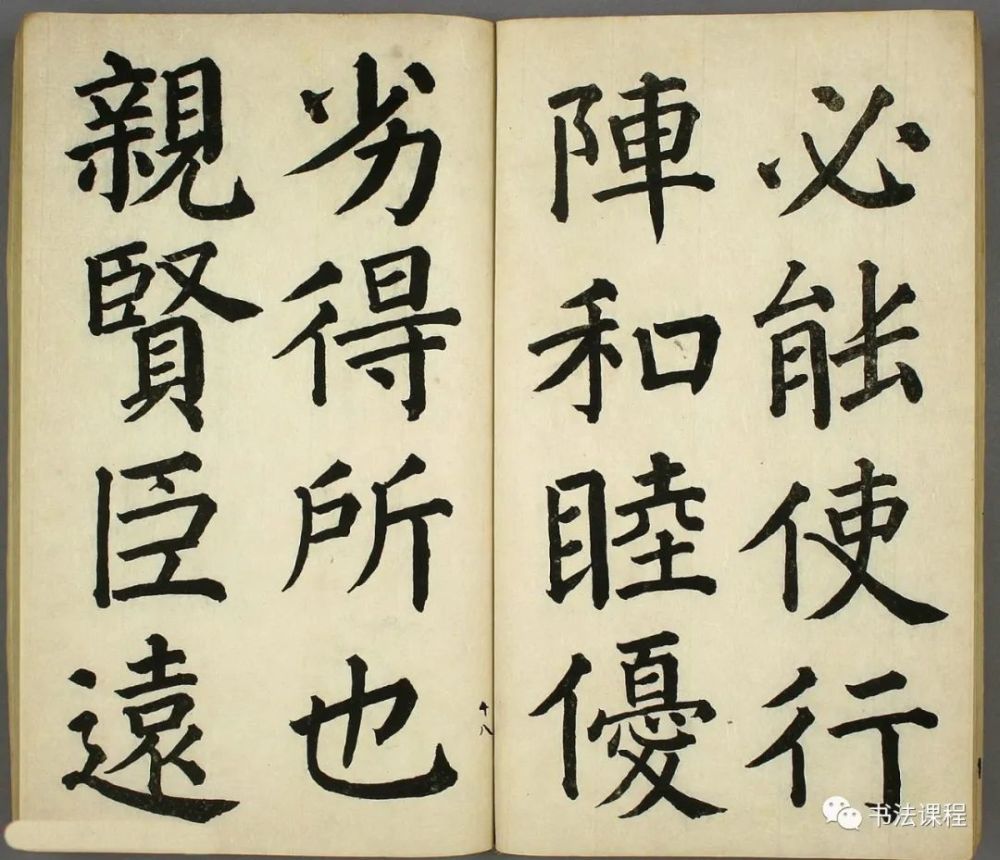 必能使行
陣和睦優
十八
劣得所也
親賢臣遠
书法课程